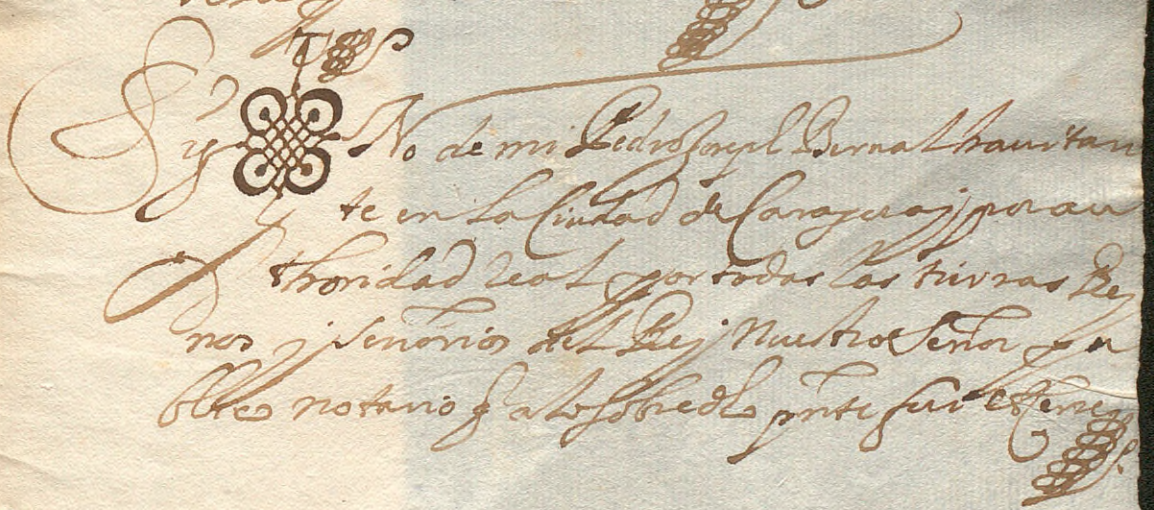 Sig No de mi Pedro Joseph Bernal havitan
te en la Ciudad de Caragoza y por au
thoridad Real por todas las tierras Rey
nos y señorios del Rey Nuestro Señor pu
blico notario q̃ a lo sobredho pnte fui et cerre